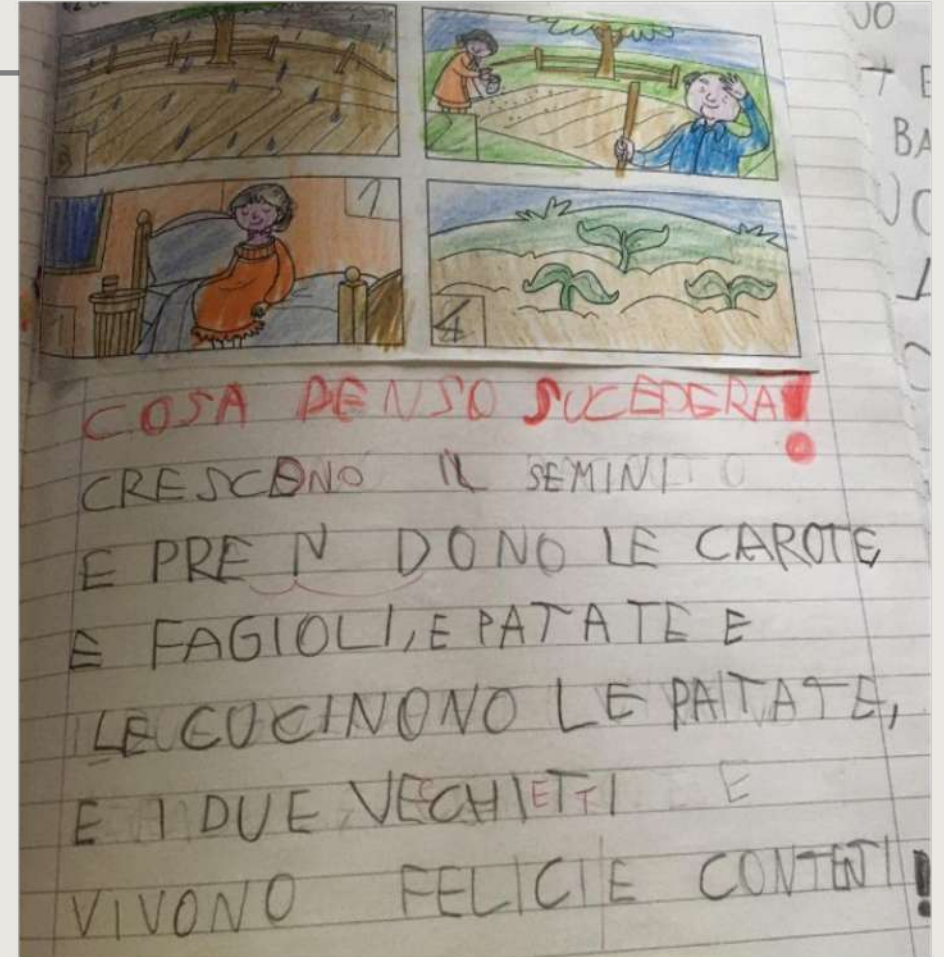 3
1
1
4
COSA PENSO SUCEDERA!
CRESCONO IL SEMINI
E PRENDONO LE CAROTE,
E FAGIOLI, E PATATE E
LE CUCINONO LE PATATE,
E I DUE VECHIETTI E
VIVONO FELICI E CONTENTI!
JO
+ E
BA